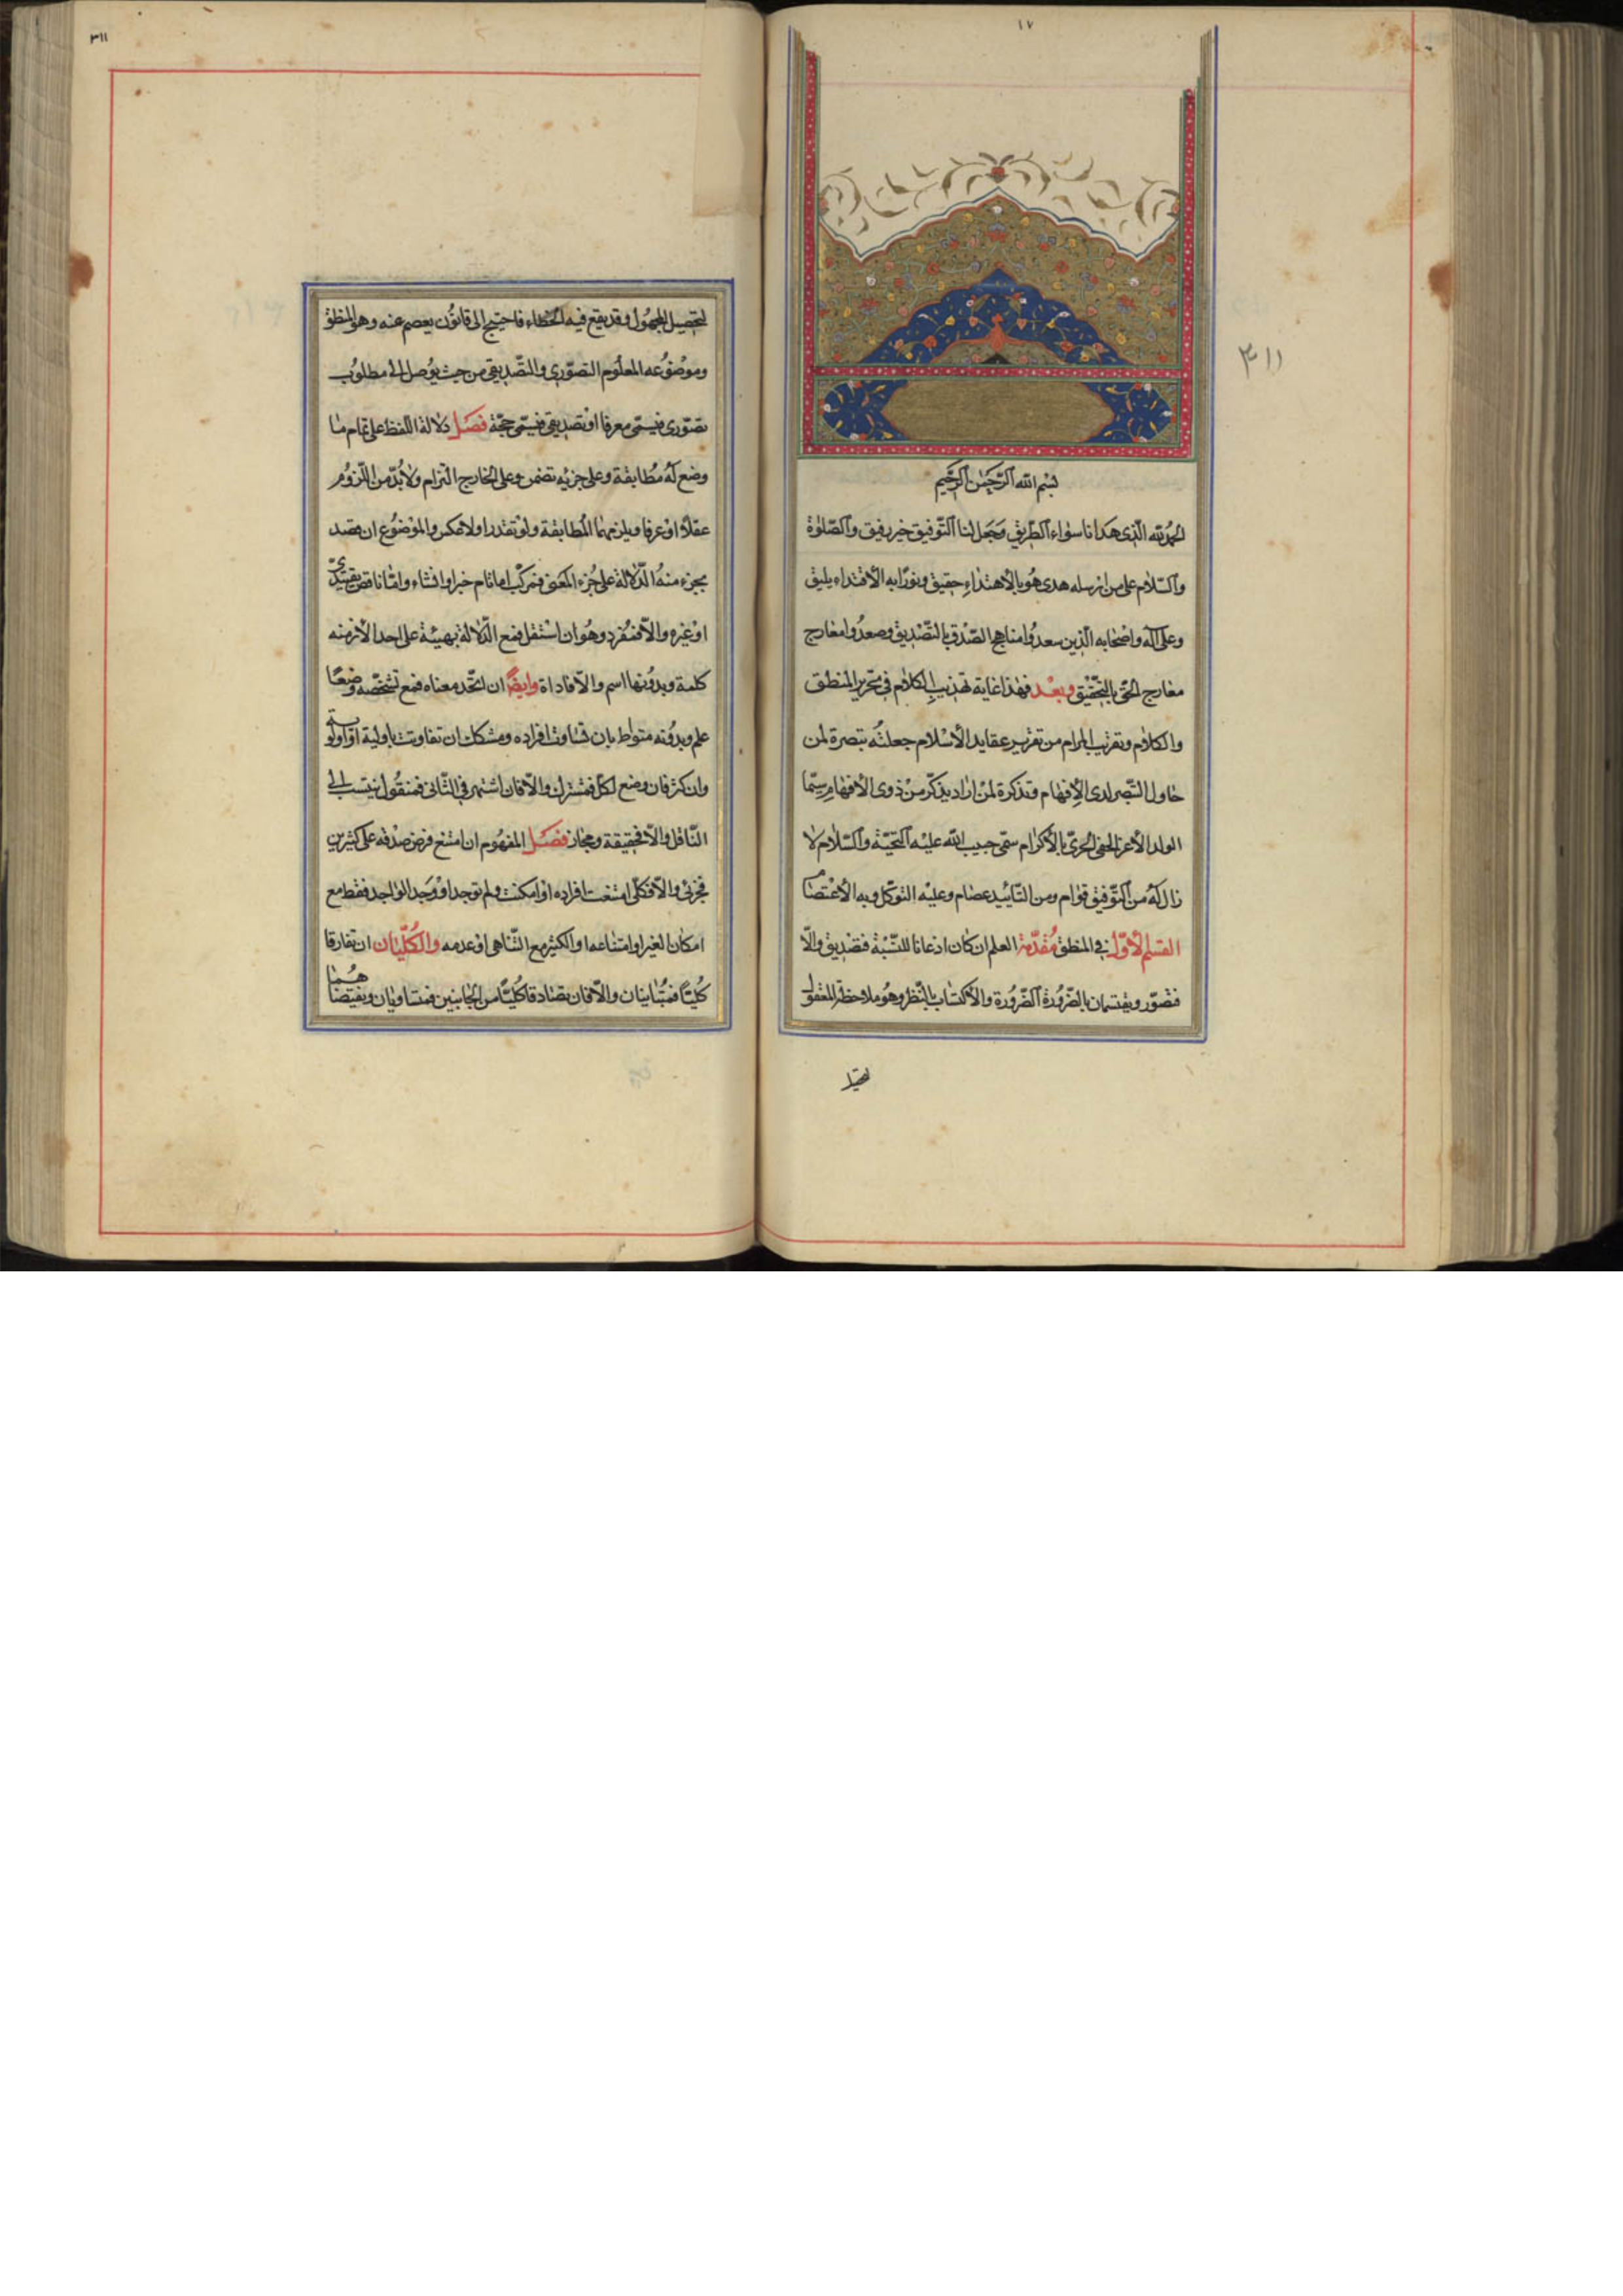 ١٧
٣١١
بسم الله الرحمن الرحيم
الحمد لله الذى هدانا سواء الطريق وجعل لنا التوفيق خير رفيق والصلوة
والسلام على من ارسله هدى هو بالاهتداء حقيق ونورا به الاقتداء يليق
وعلى آله واصحابه الذين سعدوا مناهج الصدق بالتصديق وصعدوا معارج
معارج الحق بالتحقيق وبعد فهذا غاية تهذيب الكلام فى تحرير المنطق
والكلام وتقريب المرام من تقرير عقايد الاسلام جعلته تبصرة لمن
حاول التبصر لدى الافهام وتذكرة لمن اراد يذكر من ذوى الافهام سيما
الولد الاعز الحفى الحرى بالاكرام سمى حبيب الله عليه التحية والسلام لا
زال له من التوفيق قوام ومن التأييد عصام وعليه التوكل وبه الاعتصام
القسم الاول فى المنطق مقدمة العلم ان كان اذعانا للنسبة فتصديق والا
فتصور ويقتسمان بالضرورة الضرورة والاكتساب بالنظر وهو ملاحظة المعقول
لتحصيل
٣١١
لتحصيل المجهول وقد يقع فيه الخطاء فاحتيج الى قانون يعصم عنه وهو المنطق
وموضوعه المعلوم التصورى والتصديقى من حيث يوصل الى مطلوب
تصورى فيسمى معرفا او تصديقى فيسمى حجة فصل دلالة اللفظ على تمام ما
وضع له مطابقة وعلى جزئه تضمن وعلى الخارج التزام ولا بد من اللزوم
عقلا او عرفا ويلزمهما المطابقة ولو تقديرا ولا عكس والموضوع ان قصد
بجزء منه الدلالة على جزء المعنى فمركب اما تام خبر او انشاء واما ناقص تقييدى
او غيره والا فمفرد وهو ان استقل فمع الدلالة بهيئة على احد الازمنه
كلمة وبدونها اسم والا فاداة وايضا ان اتحد معناه فمع تشخصه وضعا
علم وبدونه متواط بان تساوت افراده ومشكك ان تفاوت باولية او اولوية
وان كثر فان وضع لكل فمشترك والا فان اشتهر فى الثانى فمنقول ينسب الى
الناقل والا فحقيقة ومجاز فصل المفهوم ان امتنع فرض صدقه على كثيرين
فجزئى والا فكلى امتنعت افراده او امكنت ولم توجد او وجد الواحد فقط مع
امكان الغير او امتناعه او الكثير مع التناهى او عدمه والكليان ان تفارقا
كليا فمتباينان والا فان تصادقا كليا من الجانبين فمتساويان ونقيضاهما